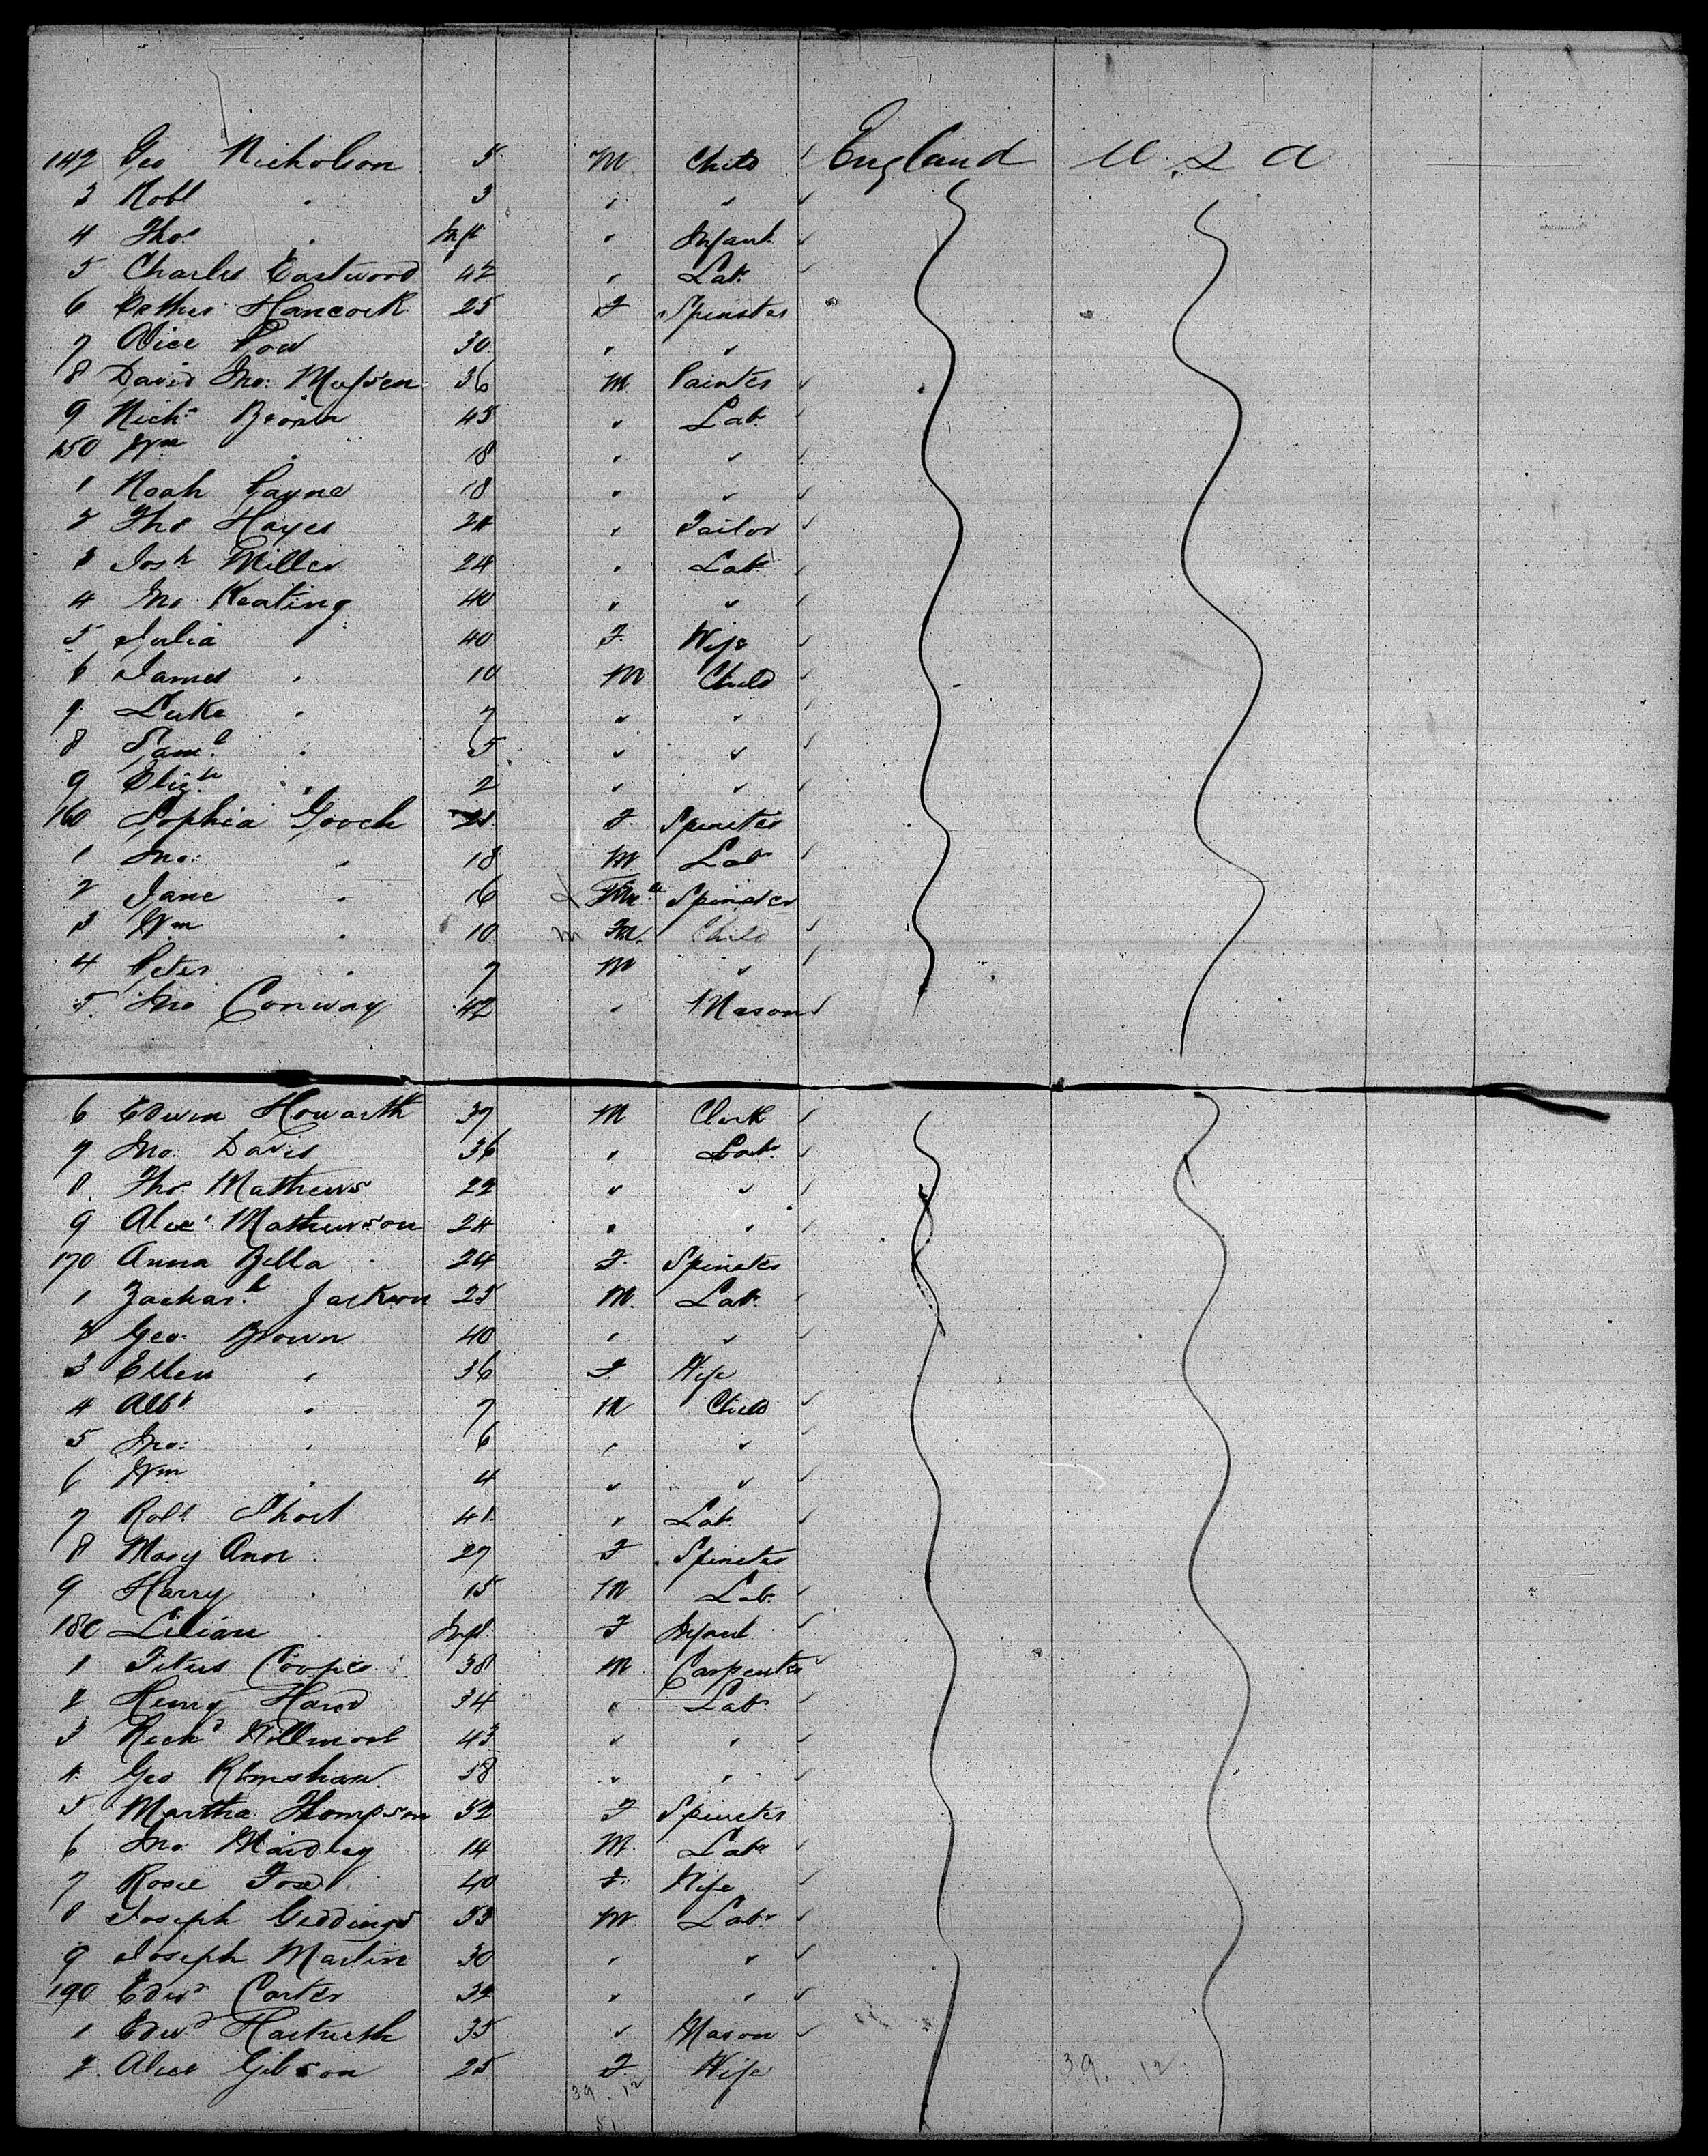 142 Geo Nicholson 5 M Child England U.S.A
3 Robt " 3 " "
4 Thos " Inft " Infant
5 Charles Eastwood 42 " Lab
6 Esther Hancock 25 F Spinster
7 Alice Pow 30 " "
8 David Jno: Mussen 36 M Painter
9 Nichs Brown 45 " Lab
150 Wm " 18 " "
1 Noah Payne 18 " "
2 Thos Hayes 24 " Tailor
3 Josh Miller 24 " Lab
4 Jno Keating 40 " "
5 Julia " 40 F Wife
6 James " 10 M Child
7 Luke " 7 " "
8 Saml " 5 " "
9 Elizth " 2 " "
160 Sophia Gooch F Spinster
1 Jno: " 18 M Lab
2 Jane " 16 Spinster
3 Wm " 10 M Child
4 Peter " 7 M "
5 Jno Conway 42 " Mason
6 Edwin Howarth 37 M Clerk
7 Jno. Davis 36 " Lab
8 Thos Mathews 22 " "
9 Alexr Mathewson 24 " "
170 Anna Bella " 24 F Spinster
1 Zacharh Jackson 25 M Lab
2 Geo. Brown 40 " "
3 Ellen " 36 F Wife
4 Albt " 7 M Child
5 Jno: " 6 " "
6 Wm " 4 " "
7 Robt Short 41 " Lab
8 Mary Ann " 27 F Spinster
9 Harry " 15 M Lab
180 Lilian " Inft F Infant
1 Titus Cooper 38 M Carpenter
2 Henry Hand 34 " Lab
3 Richd Willmort 43 " "
4 Geo 38 " "
5 Martha Thompson 52 F Spinster
6 Jno 14 M Lab
7 Rosie 40 F Wife
8 Joseph Geddings 53 M Lab
9 Joseph Martin 30 " "
190 Edwd Carter 32 " "
1 Edwd 35 " Mason
2 Alice Gibson 25 F Wife
39 . 12 39 . 12
51